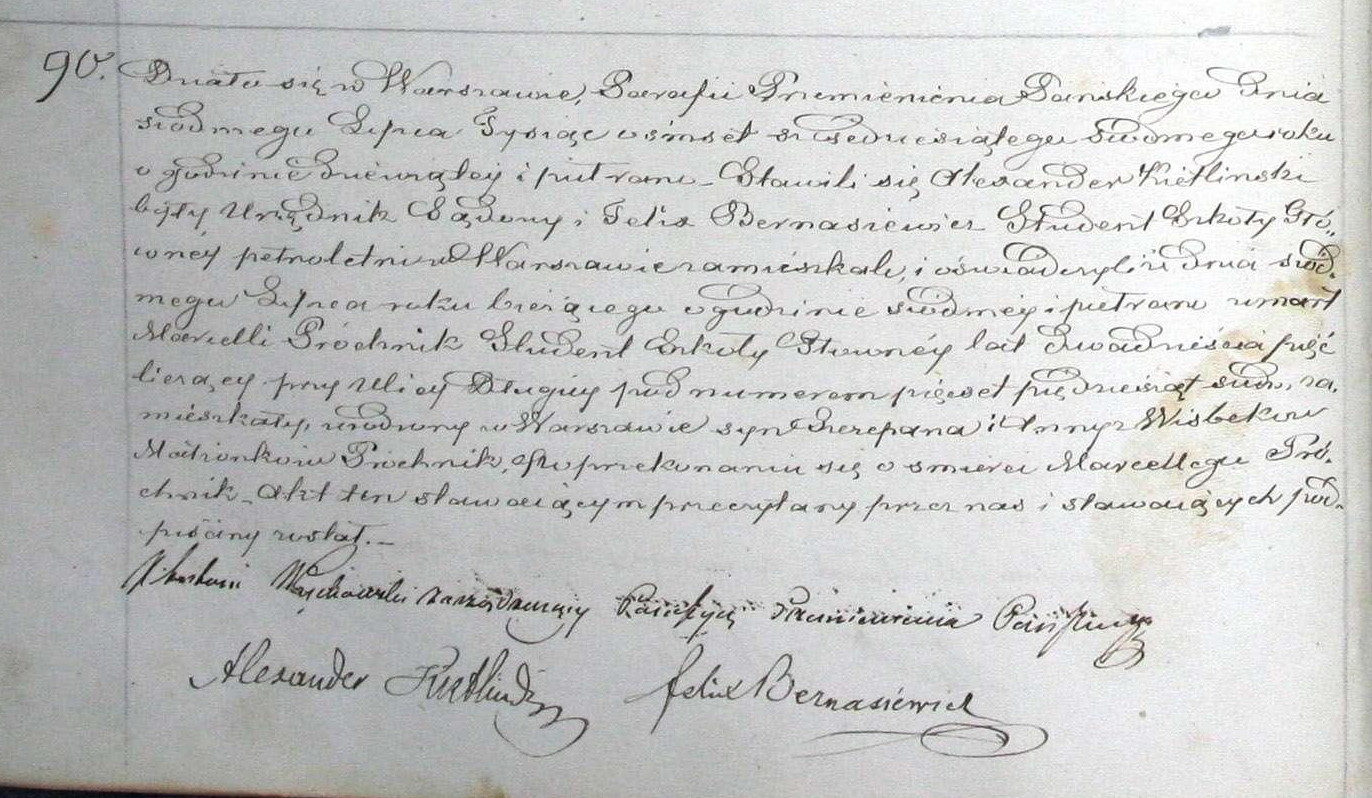 90. Działo się w Warszawie, Parafii Przemienienia Pańskiego dnia
siódmego Lipca Tysiąc ośmset sześdziesiątego siódmego roku
o godzinie dziewiątej i pół rano. Stawili się Alexander Kietlinski
były Urzędnik Sądowy i Felix Bernasiewicz Student Szkoły Głó„
wnéj pełnoletni w Warszawie zamieszkali, i oświadczyli iż dnia siód.
mego Lipca roku bieżącego o godzinie siódméj i pół rano umarł
Marcelli Próchnik Student Szkoły Głównéj lat dwadzieścia pięć
liczący przy Ulicy Długiéj pod numerem pięćset piędziesiąt siódm, za„
mieszkały, urodzony w Warszawie syn Szczepana i Anny z Wisbeków
Małżonków Próchnik. Po przekonaniu się o śmierci Marcellego Pró„
chnik. Akt ten stawającym przeczytany przez nas i stawających pod„
pisany został.—
Wychowski zarządzający Parafiją Przemienienia Pańskiego
Alexander Kietlinski Felix Bernasiewicz